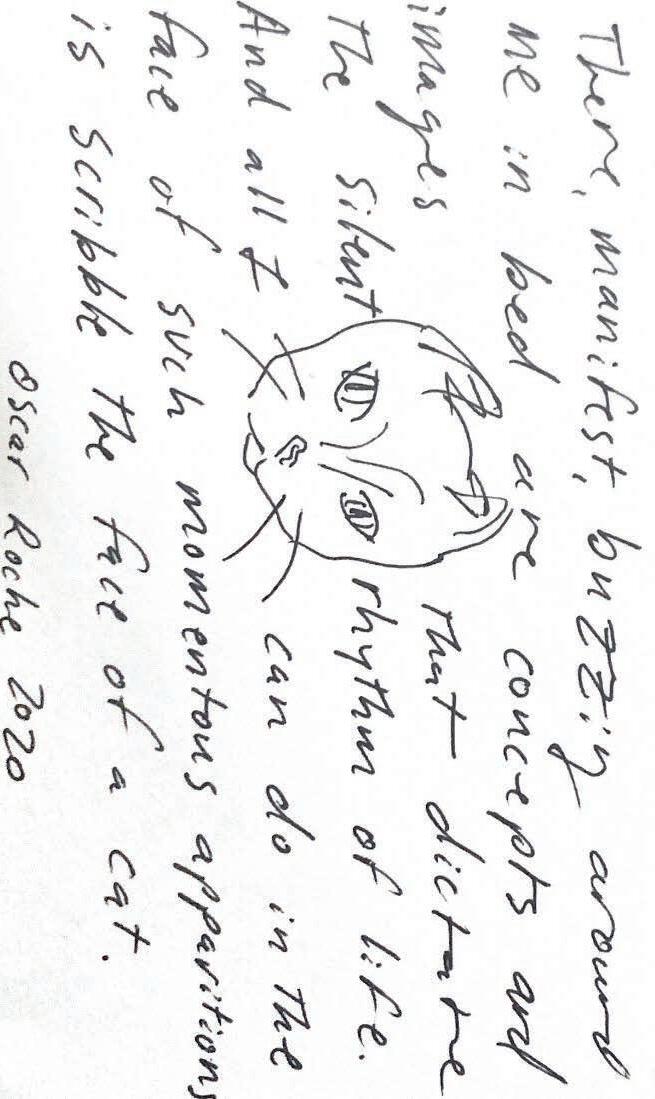 There, manifest, buzzing around
me in bed are concepts and
images that dictate
the silent rhythm of life.
And all I can do in the
face of such momentous apparitions
is scribble the face of a cat.
Oscar Roche 2020